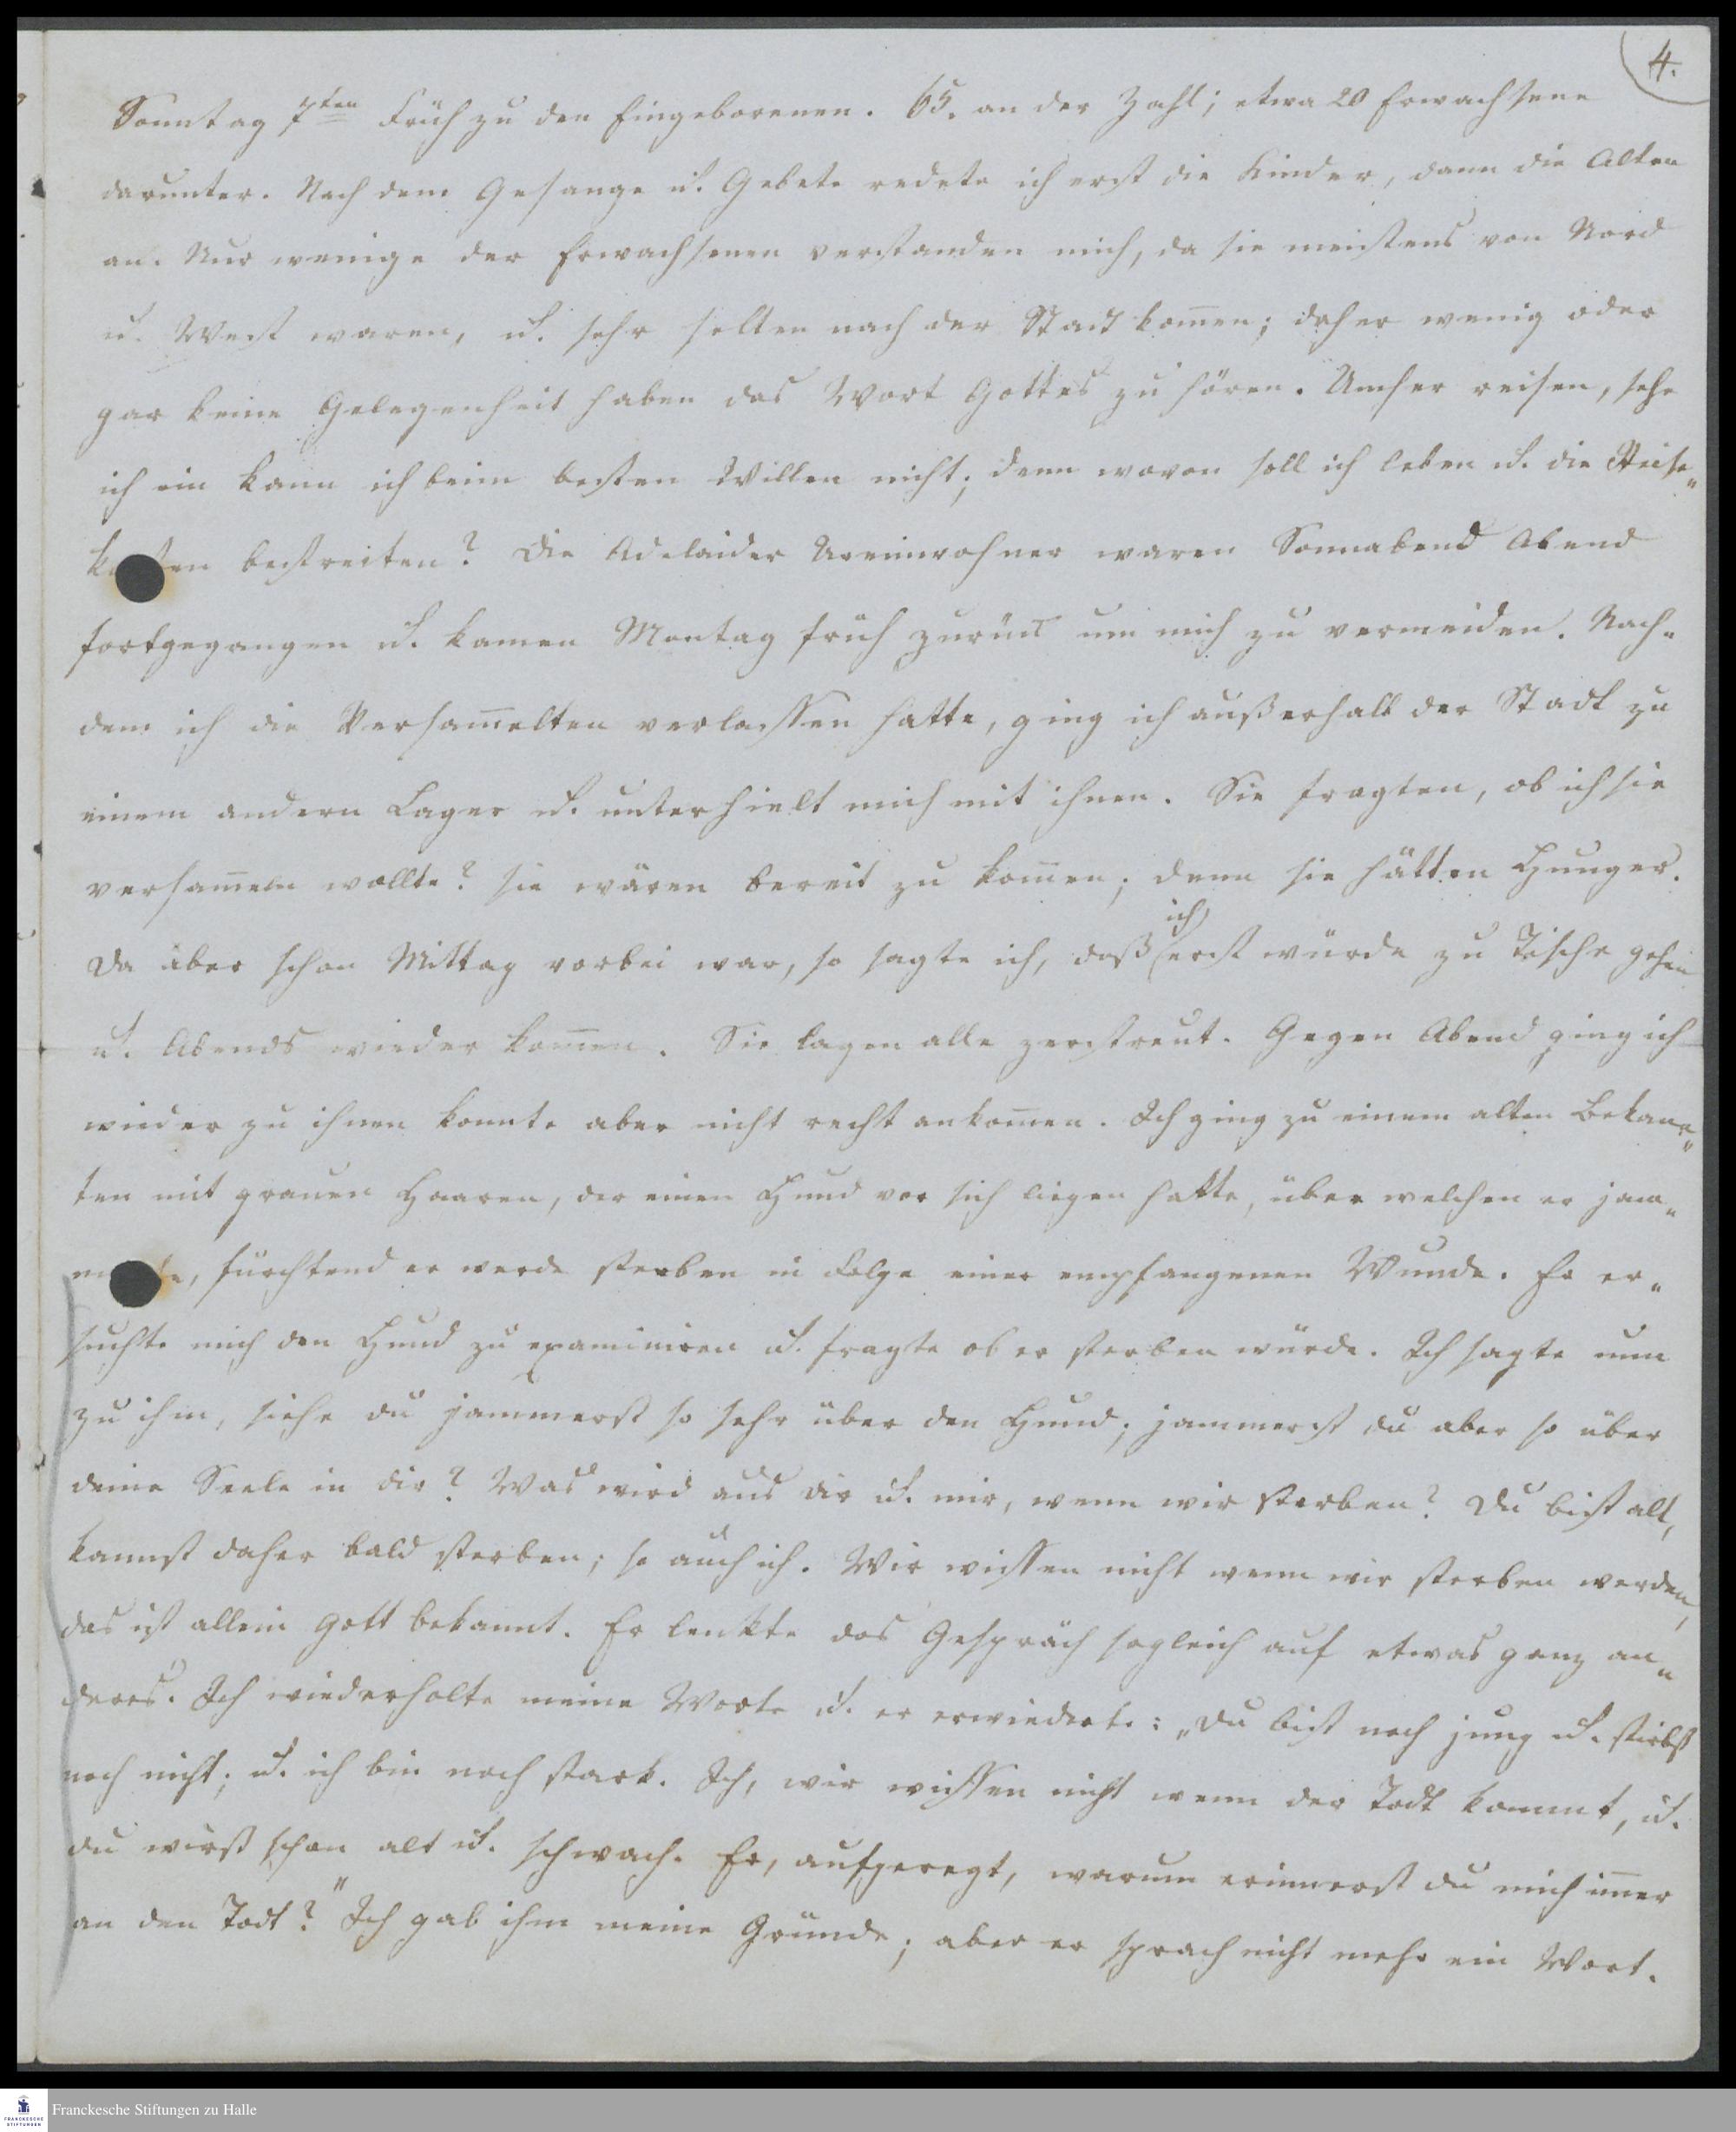 4.
Sonntag 7ten Früh zu den Eingeborenen. 65. an der Zahl; etwa 20 Erwachsene
darunter. Nach dem Gesange u. Gebete redete ich erst die Kinder, dann die Alten
an. Nur wenige der Erwachsenen verstanden mich, da sie meistens von Nord
u. West waren, u. sehr selten nach der Stadt kom̅en; daher wenig oder
gar keine Gelegenheit haben das Wort Gottes zu hören. Umher reisen, sehe
ich ein kann ich beim besten Willen nicht; denn wovon soll ich leben u. die Reise„
kosten bestreiten? Die Adelaider Ureinwohner waren Sonnabend Abend
fortgegangen u. kamen Montag früh zurück um mich zu vermeiden. Nach„
dem ich die Versam̅elten verlassen hatte, ging ich außerhalb der Stadt zu
einem andern Lager u. unterhielt mich mit ihnen. Sie fragten, ob ich sie
versam̅eln wollte? sie wären bereit zu kom̅en; denn sie hätten Hunger.
Da aber schon Mittag vorbei war, so sagte ich, daß ich erst würde zu Tische gehen
u. Abends wieder kom̅en. Sie lagen alle zerstreut. Gegen Abend ging ich
wieder zu ihnen konnte aber nicht recht ankom̅en. Ich ging zu einem alten Bekann„
ten mit grauen Haaren, der einen Hund vor sich liegen hatte, über welchen er jam„
merte, fürchtend er werde sterben in Folge einer empfangenen Wunde. Er er„
suchte mich den Hund zu examiniren u. fragte ob er sterben würde. Ich sagte nun
zu ihm, siehe du jammerst so sehr über den Hund; jammerst du aber so über
deine Seele in dir? Was wird aus dir u. mir, wenn wir sterben? Du bist alt,
kannst daher bald sterben; so auch ich. Wir wissen nicht wenn wir sterben werden,
das ist allein Gott bekannt. Er lenkte das Gespräch sogleich auf etwas ganz an„
deres. Ich wiederholte meine Worte u. er erwiederte: „Du bist noch jung u. stirbst
noch nicht; u. ich bin noch stark. Ich, wir wissen nicht wenn der Todt kommt, u.
du wirst schon alt u. schwach. Er, aufgeregt, warum erinnerst du mich im̅er
an den Todt?" Ich gab ihm meine Gründe; aber er sprach nicht mehr ein Wort.
FRANCKESCHE STIFTUNGEN
Franckesche Stiftungen zu Halle